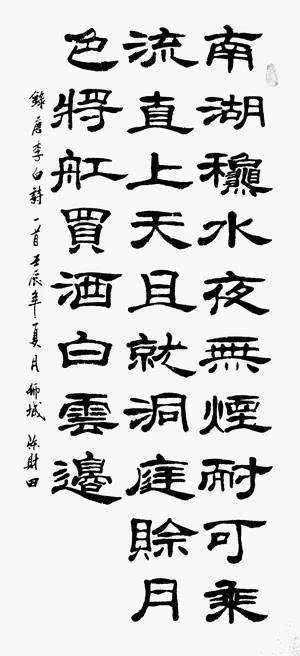 南湖龝水夜無煙耐可乘
流直上天且就洞庭賒月
色將舡買酒白雲邊
錄唐李白詩一首壬辰年夏月城財田